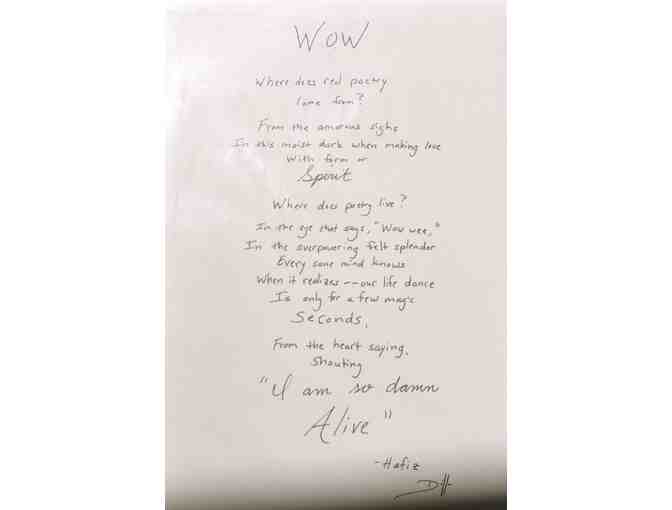 WOW
Where does real poetry
Come from?
From the amorous sighs
In this moist dark when making love
With form or
Spirit
Where does poetry live?
In the eye that says, "Wow wee,"
In the overpowering felt splendor
Every sane mind knows
When it realizes -- our life dance
Is only for a few magic
Seconds,
From the heart saying,
Shouting
"I am so damn
Alive"
- Hafiz